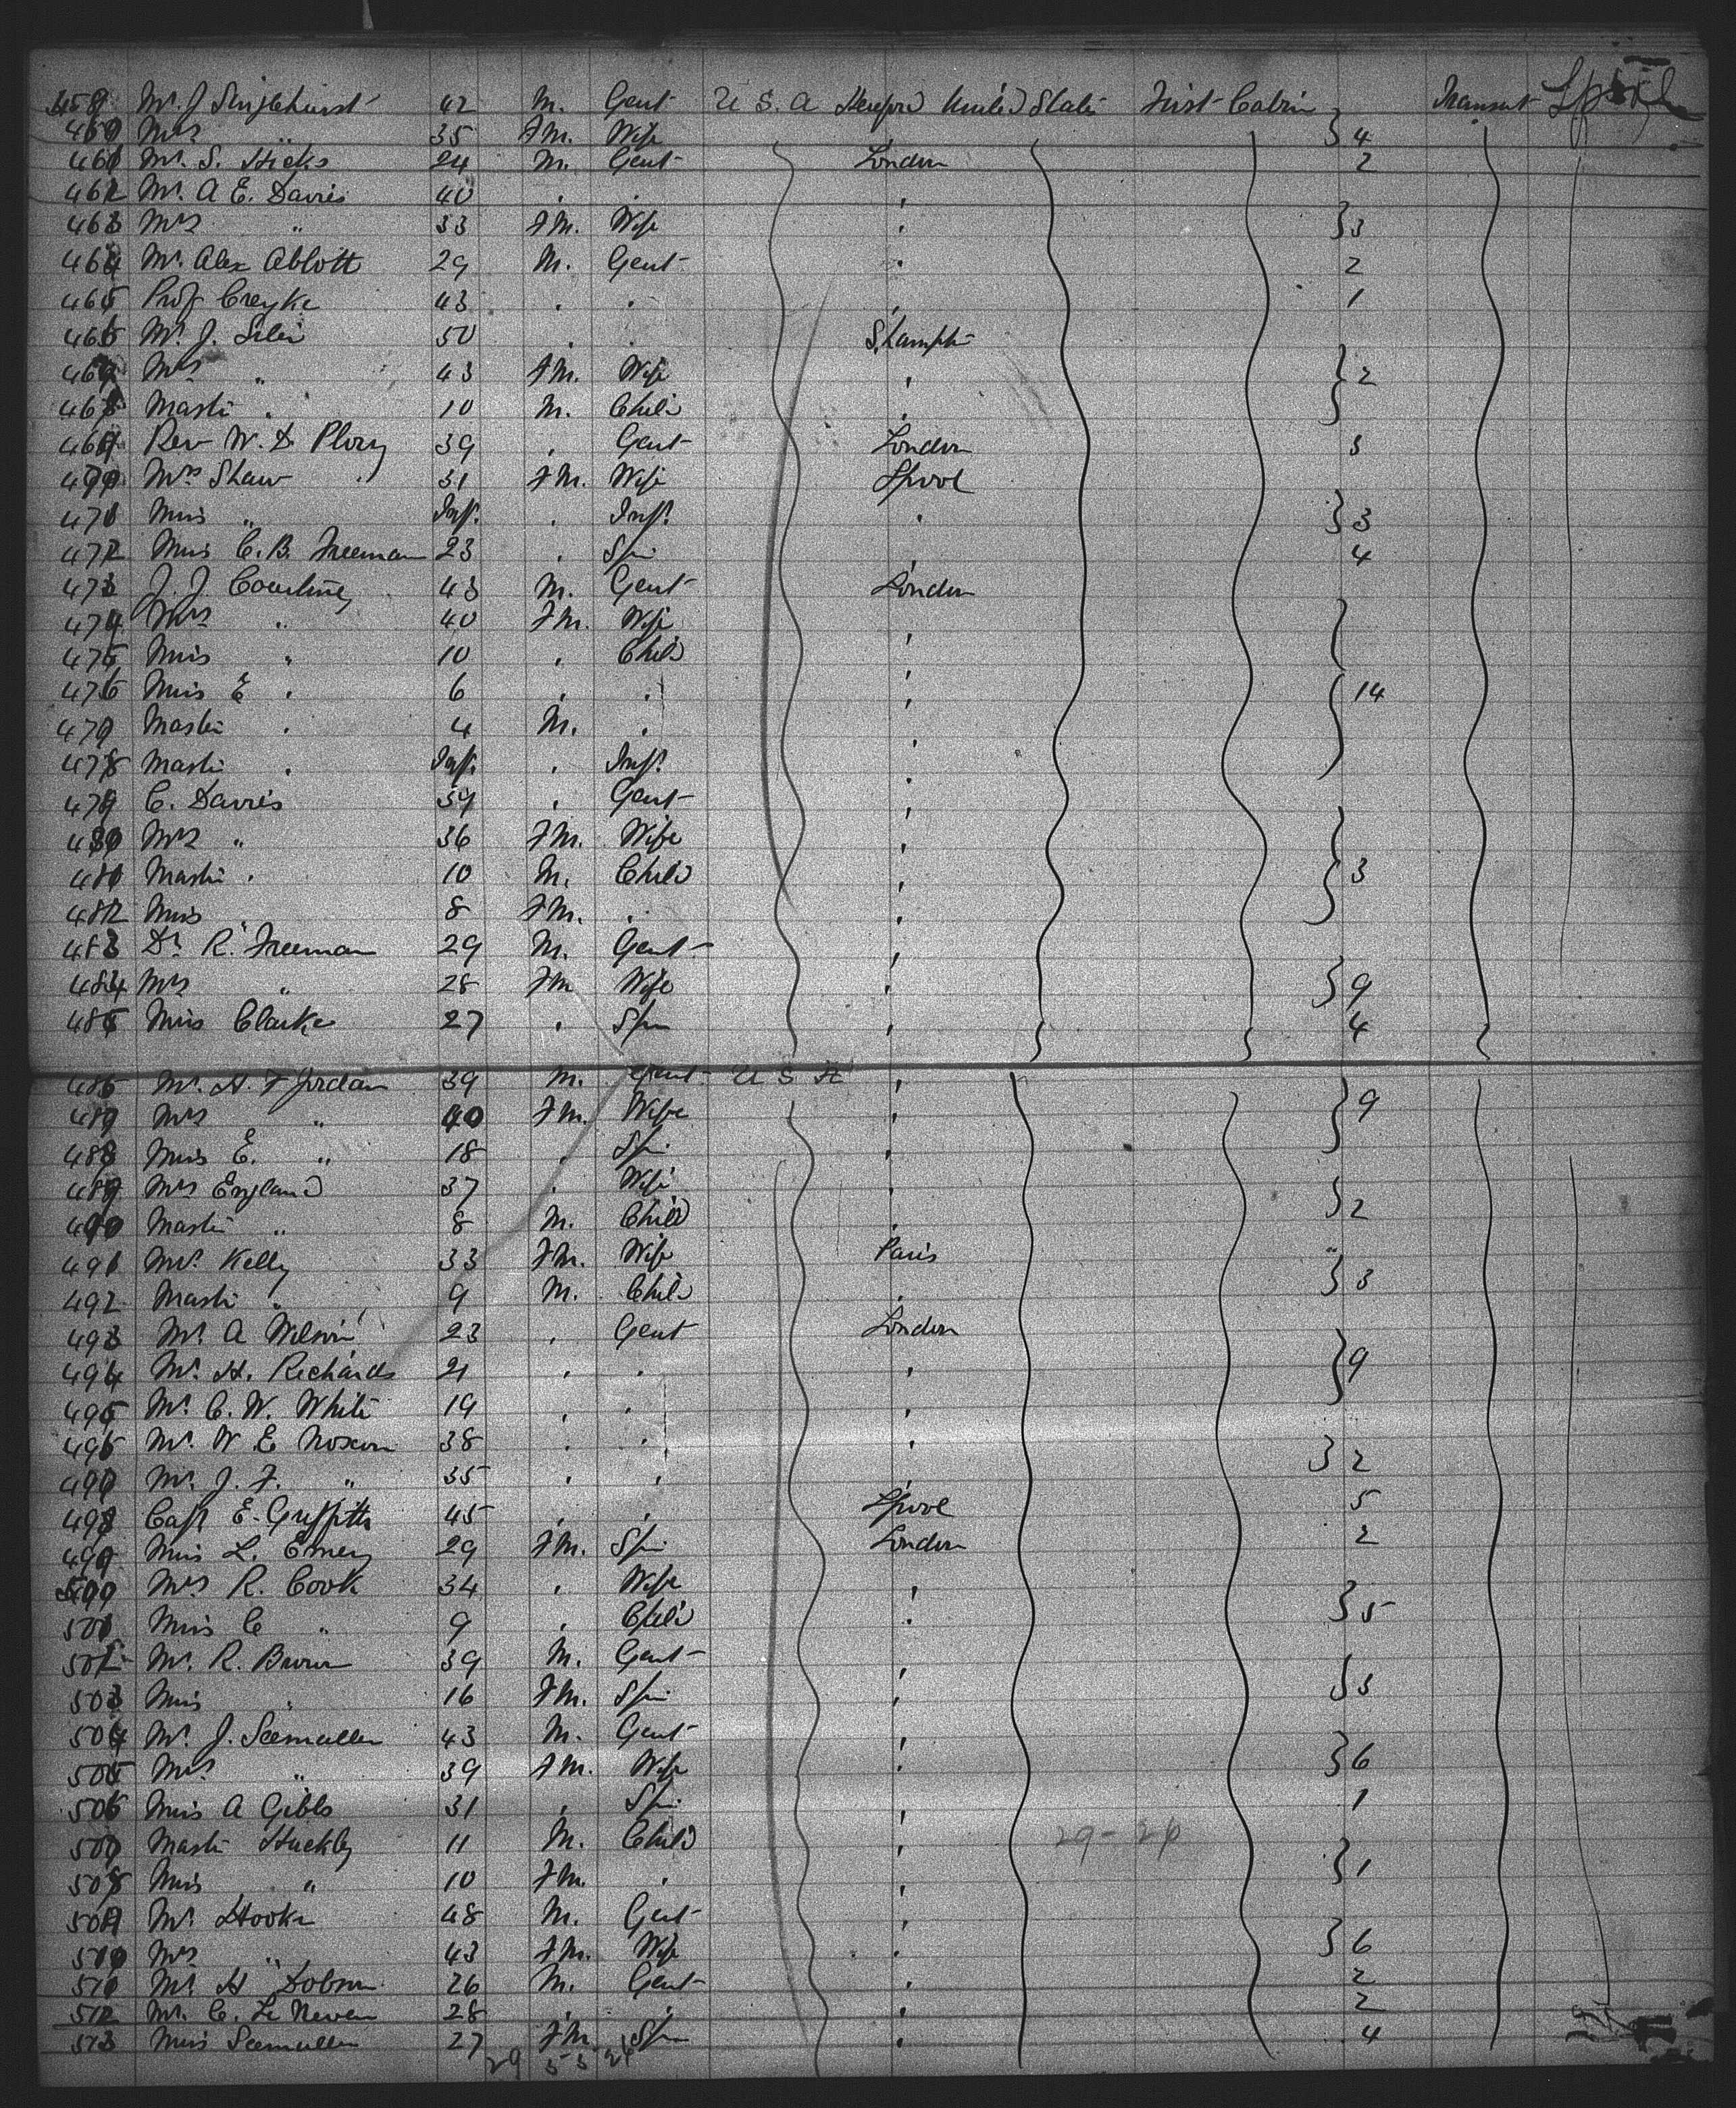 459 Mr. J Singlehurst 42 M. Gent U S. A United States First Cabin Transit
460 Mrs " 35 FM. Wife } 4
461 Mr. S. Hicks 24 M. Gent London 2
462 Mr. A E. Davis 40 . . ,
463 Mrs " 33 FM. Wife , } 3
464 Mr. Alex Abbott 29 M. Gent , 2
465 Prof Creyke 43 . . , 1
466 Mr. J. 50 . . S.hampton
467 Mrs " 43 FM. Wife , } 2
468 Master " 10 M. Child ,
469 Rev W. D 39 , Gent London 3
470 Mrs Shaw 31 FM. Wife Lpool
471 Miss " Inft. , Inft. , } 3
472 Miss C. B. Freeman 23 , Spin , 4
473 J. J. Courtney 43 M. Gent London
474 Mrs " 40 FM. Wife ,
475 Miss " 10 , Child ,
476 Miss E " 6 , , , } 14
477 Master " 4 M. , ,
478 Master " Inft. , Inft. ,
479 C. Davies 39 , Gent ,
480 Mrs " 36 FM. Wife ,
481 Master " 10 M. Child , } 3
482 Miss " 8 FM. . ,
483 Dr. R. Freeman 29 M. Gent ,
484 Mrs " 28 FM Wife , } 9
485 Miss Clarke 27 , Spin , 4
486 Mr. H F Jordan 39 M. Gent U S A ,
487 Mrs " 40 FM. Wife , } 9
488 Miss E. " 18 , Spin ,
489 Mrs England 37 , Wife ,
490 Master " 8 M. Child , } 2
491 Mrs. Kelly 33 FM. Wife Paris "
492 Master " 9 M. Child , } 3
493 Mr. A Wilson 23 , Gent London
494 Mr. H. Richards 21 , , , } 9
495 Mr. C. W. White 19 , , ,
496 Mr. W. E Noxon 38 , , , } 2
497 Mr. J. F. " 35 , , ,
498 Capt E. Griffiths 45 , , Lpool 5
499 Miss L. Emery 29 FM. Spin London 2
500 Mrs R. Cook 34 , Wife ,
501 Miss C " 9 , Child , } 5
502 Mr. R. Brown 39 M. Gent ,
503 Miss " 16 FM. Spin , } 3
504 Mr. J. Seemuller 43 M. Gent ,
505 Mrs. " 39 FM. Wife , } 6
506 Miss A Gibbs 31 , Spin , 1
507 Master Huckly 11 M. Child , 29-26
508 Miss " 10 FM. , , } 1
509 Mr. Hooke 48 M. Gent ,
510 Mrs " 43 FM. Wife , } 6
511 Mr. H Dobson 26 M. Gent , 2
512 Mr. C. Le Neven 28 , , , 2
513 Miss Seemuller 27 FM Spin , 4
29 55 26